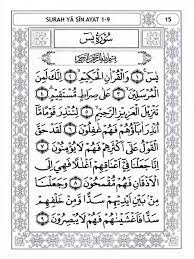 SURAH YĀ SĪN AYAT 1-9
15
سُوْرَةُ يٰسٓ
بِسْمِ اللّٰهِ الرَّحْمٰنِ الرَّحِيْمِ
يٰسٓ ۝١ وَالْقُرْاٰنِ الْحَكِيْمِ ۝٢ اِنَّكَ لَمِنَ
الْمُرْسَلِيْنَ ۝٣ عَلٰى صِرَاطٍ مُّسْتَقِيْمٍ ۝٤
تَنْزِيْلَ الْعَزِيْزِ الرَّحِيْمِ ۝٥ لِتُنْذِرَ قَوْمًا مَّآ
اُنْذِرَ اٰبَآؤُهُمْ فَهُمْ غٰفِلُوْنَ ۝٦ لَقَدْ حَقَّ
الْقَوْلُ عَلٰٓى اَكْثَرِهِمْ فَهُمْ لَا يُؤْمِنُوْنَ ۝٧
اِنَّا جَعَلْنَا فِيْٓ اَعْنَاقِهِمْ اَغْلٰلًا فَهِيَ اِلَى
الْاَذْقَانِ فَهُمْ مُّقْمَحُوْنَ ۝٨ وَجَعَلْنَا
مِنْۢ بَيْنِ اَيْدِيْهِمْ سَدًّا وَّمِنْ خَلْفِهِمْ
سَدًّا فَاَغْشَيْنٰهُمْ فَهُمْ لَا يُبْصِرُوْنَ ۝٩